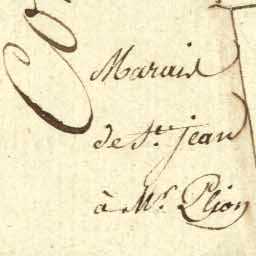 Marais
de St. Jean
à Mr. Plion